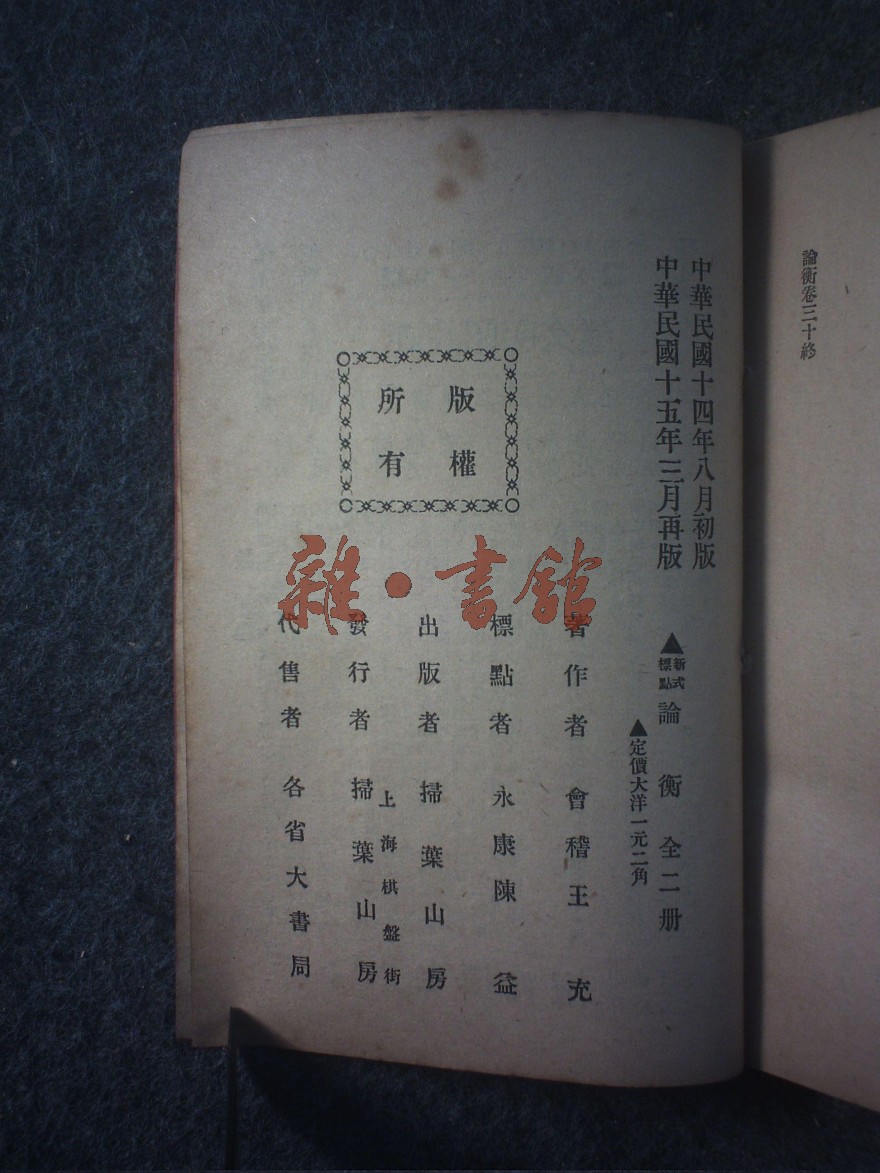 論衡卷三十終
中華民國十四年八月初版
中華民國十五年三月再版
▲新式標點論衡全二册
▲定價大洋一元二角
版權
所有
著作者 會稽王充
標點者 永康陳益
出版者 掃葉山房
上海棋盤街
發行者 掃葉山房
代售者 各省大書局
雜·書館